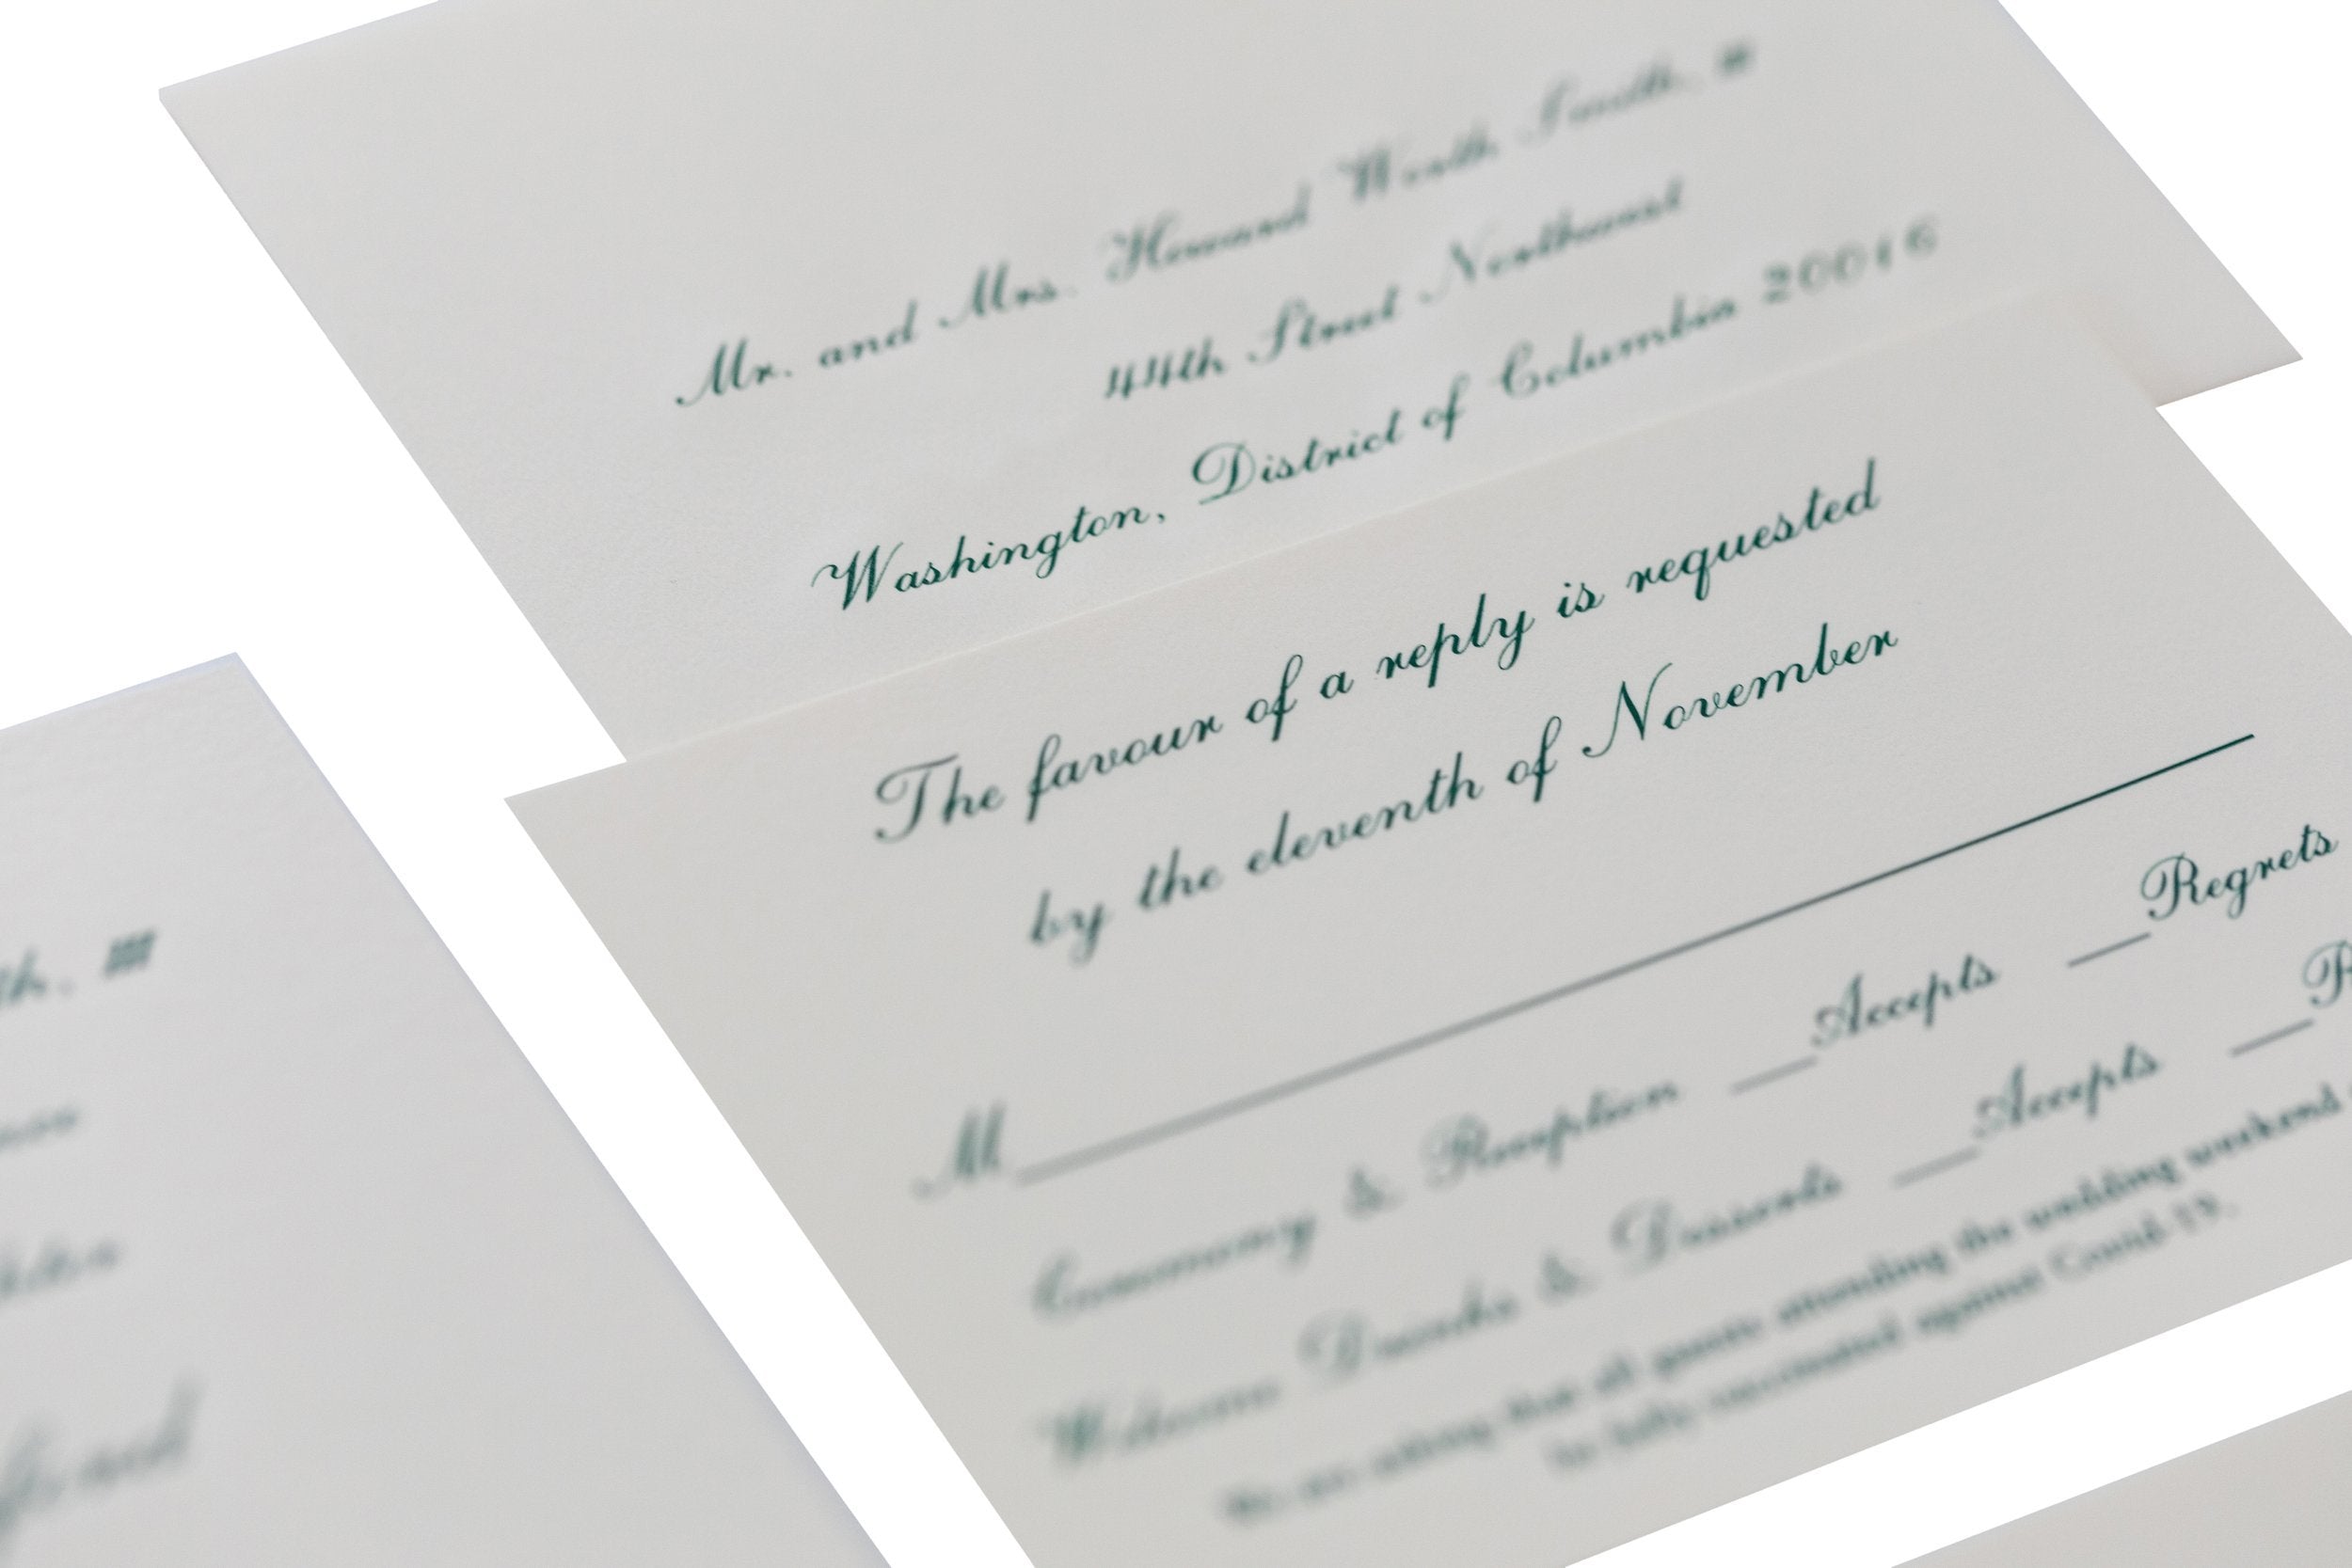 Mr. and Mrs. Howard Worth Smith, III
44th Street Northwest
Washington, District of Columbia 20016
The favour of a reply is requested
by the eleventh of November
M
Ceremony & Reception __Accepts __Regrets
Welcome Drinks & Desserts __Accepts __R
We are asking that all guests attending the wedding weekend
be fully vaccinated against Covid-19.
th, III